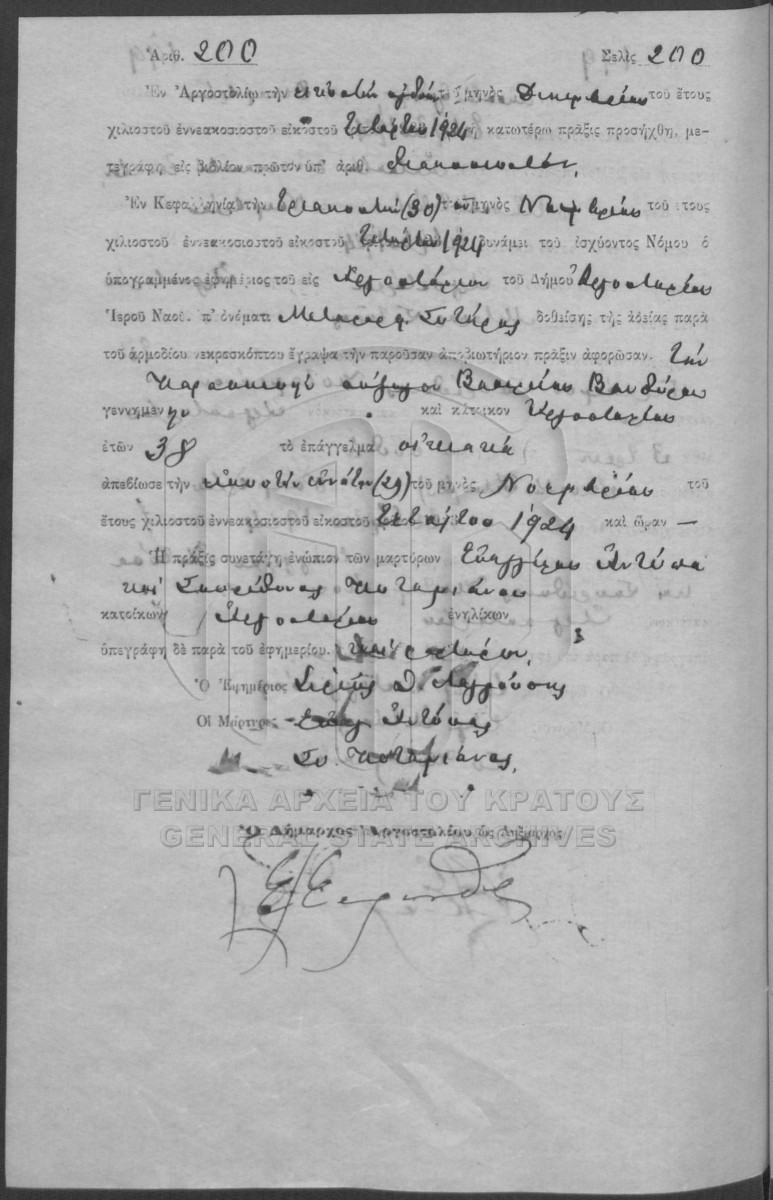 Ἀριθ. 200 Σελὶς 200
Ἐν Ἀργοστολίῳ τὴν εἰκοστὴν ὀγδόην τοῦ μηνὸς Δεκεμβρίου τοῦ ἔτους
χιλιοστοῦ ἐννεακοσιοστοῦ εἰκοστοῦ τετάρτου 1924 ἡ κατωτέρω πρᾶξις προσήχθη, με-
τεγράφη εἰς βιβλίον πρῶτον ὑπ' ἀριθ. διακοσιοστόν,
Ἐν Κεφαλληνίᾳ τὴν τριακοστὴν (30) τοῦ μηνὸς Νοεμβρίου τοῦ ἔτους
χιλιοστοῦ ἐννεακοσιοστοῦ εἰκοστοῦ τετάρτου 1924 δυνάμει τοῦ ἰσχύοντος Νόμου ὁ
ὑπογραμμένος ἐφημέριος τοῦ εἰς Ἀργοστόλιον τοῦ Δήμου Ἀργοστολίου
Ἱεροῦ Ναοῦ ὑπ' ὀνόματι Μεταμορφ. Σωτῆρος δοθείσης τῆς ἀδείας παρὰ
τοῦ ἁρμοδίου νεκροσκόπου ἔγραψα τὴν παροῦσαν ἀποβιωτήριον πρᾶξιν ἀφορῶσαν. τὴν
Παρασκευὴν σύζυγον Βασιλείου Βανδώρου
γεννημένην καὶ κάτοικον Ἀργοστολίου
ἐτῶν 38 τὸ ἐπάγγελμα οἰκιακά
ἀπεβίωσε τὴν εἰκοστὴν ἐννάτην (29) τοῦ μηνὸς Νοεμβρίου τοῦ
ἔτους χιλιοστοῦ ἐννεακοσιοστοῦ εἰκοστοῦ τετάρτου 1924 καὶ ὥραν —
Ἡ πρᾶξις συνετάγη ἐνώπιον τῶν μαρτύρων Εὐαγγέλου Ἀντύπα
καὶ Σπυρίδωνος Ποταμιάνου
κατοίκων Ἀργοστολίου ἐνηλίκων
ὑπεγράφη δὲ παρὰ τοῦ ἐφημερίου. καὶ μαρτύρων,
Ὁ Ἐφημέριος
Οἱ Μάρτυρες Εὐάγ. Ἀντύπας
Σπ. Ποταμιάνος,
ΓΕΝΙΚΑ ΑΡΧΕΙΑ ΤΟΥ ΚΡΑΤΟΥΣ
Ὁ Δήμαρχος Ἀργοστολίου ὡς Ληξίαρχος
GENERAL STATE ARCHIVES